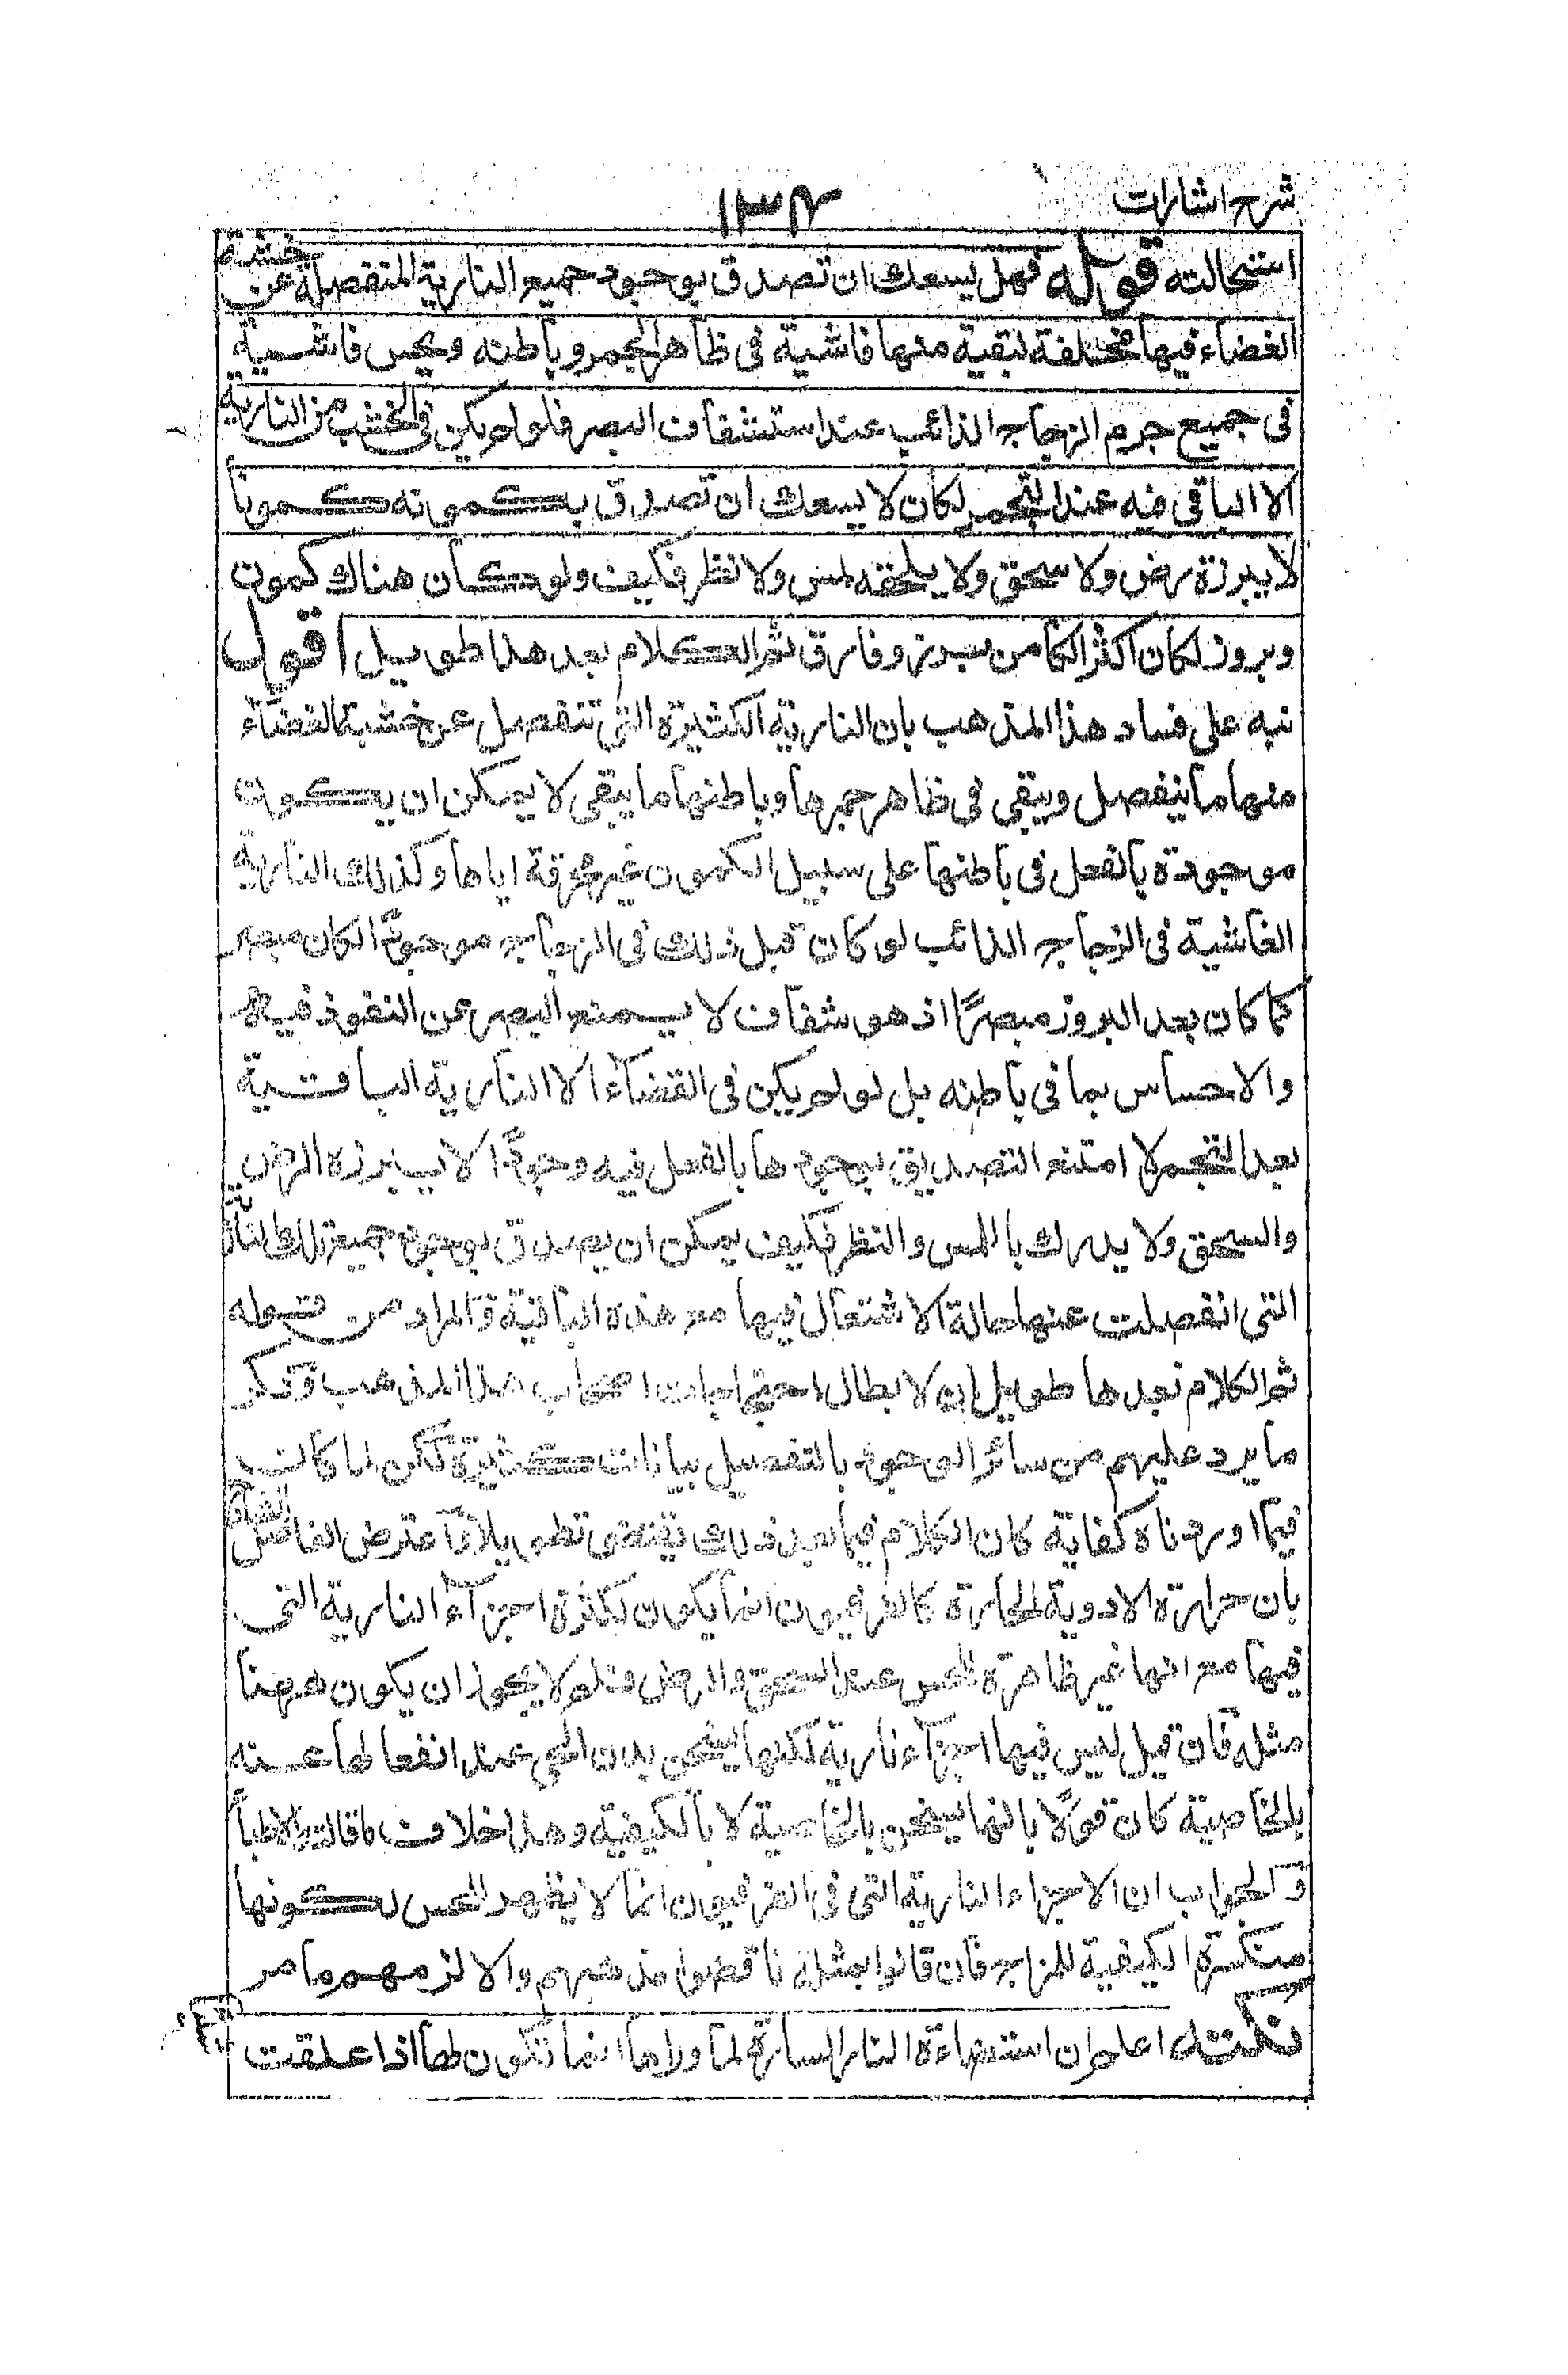 شرح اشارات
۱۳۴
استحالته قوله فهل يسعك ان تصدق بوجود جميع النارية المنفصلة عن خشبة
الغضاء فيها مخلفة لبقية منها فاشية فى ظاهر الجمر وباطنه ويحس فاشية
فى جميع جرم الزجاج الذائب عند استشفاف البصر فلو لم يكن فى الخشب من النارية
الا الباقى فيه عند التجمر لكان لا يسعك ان تصدق بكمونه كمونا
لا يبرزه رض ولا سحق ولا يلحقه لمس ولا نظر فكيف ولو كان هناك كمون
وبروز لكان اكثر الكامن برز وفارق ثم الكلام بعد هذا طويل اقول
نبه على فساد هذا المذهب بان النارية الكثيرة التى تنفصل عن خشبة الغضاء
منها ما ينفصل ويبقى فى ظاهر جمرها وباطنها ما يبقى لا يمكن ان يكون
موجودة بالفعل فى باطنها على سبيل الكمون غير محرقة اياها وكذلك النارية
الفاشية فى الزجاج الذائب لو كان قبل ذلك فى الزجاج موجودا لكان مبصر
كما كان بعد البروز مبصرًا اذ هو شفاف لا يمنع البصر عن النفوذ فيه
والاحساس بما فى باطنه بل لو لم يكن فى الغضاء الا النارية الباقية
بعد التجمر لا امتنع التصديق بوجودها بالفعل فيه وجودًا لا يبرزه الرض
والسحق ولا يدرك باللمس والنظر فكيف يمكن ان يصدق بوجود جميع تلك النارية
التى انفصلت عنها حالة الاشتعال فيها مع هذه الباقية والمراد من قوله
ثم الكلام بعد هذا طويل ان لابطال احتجاجات اصحاب هذا المذهب وذكر
ما يرد عليهم من سائر الوجوه بالتفصيل بيانات كثيرة لكن لما كانت
فيما اوردناه كفاية كان الكلام فيما بعد ذلك يقتضى تطويلا واعترض الفاضل الشارح
بان حرارة الادوية الحارة كالفرفيون انما يكون لكثرة اجزاء النارية التى
فيها مع انها غير ظاهرة للحس عند السحق والرض فلم لا يجوز ان يكون ههنا
مثله فان قيل ليس فيها اجزاء نارية لكنها يسخن بدن الحى عند انفعالها عنه
بالخاصية كان قولا بانها يسخن بالخاصية لا بالكيفية وهذا خلاف ما قالته الاطباء
والجواب ان الاجزاء النارية التى فى الفرفيون انما لا يظهر للحس لكونها
منكسرة الكيفية للمزاج فان قالوا بمثله ناقضوا مذهبهم والا لزمهم ما مر
نكتته اعلم ان استضاءة النار الساترة لما وراها انما تكون لها اذا علقت